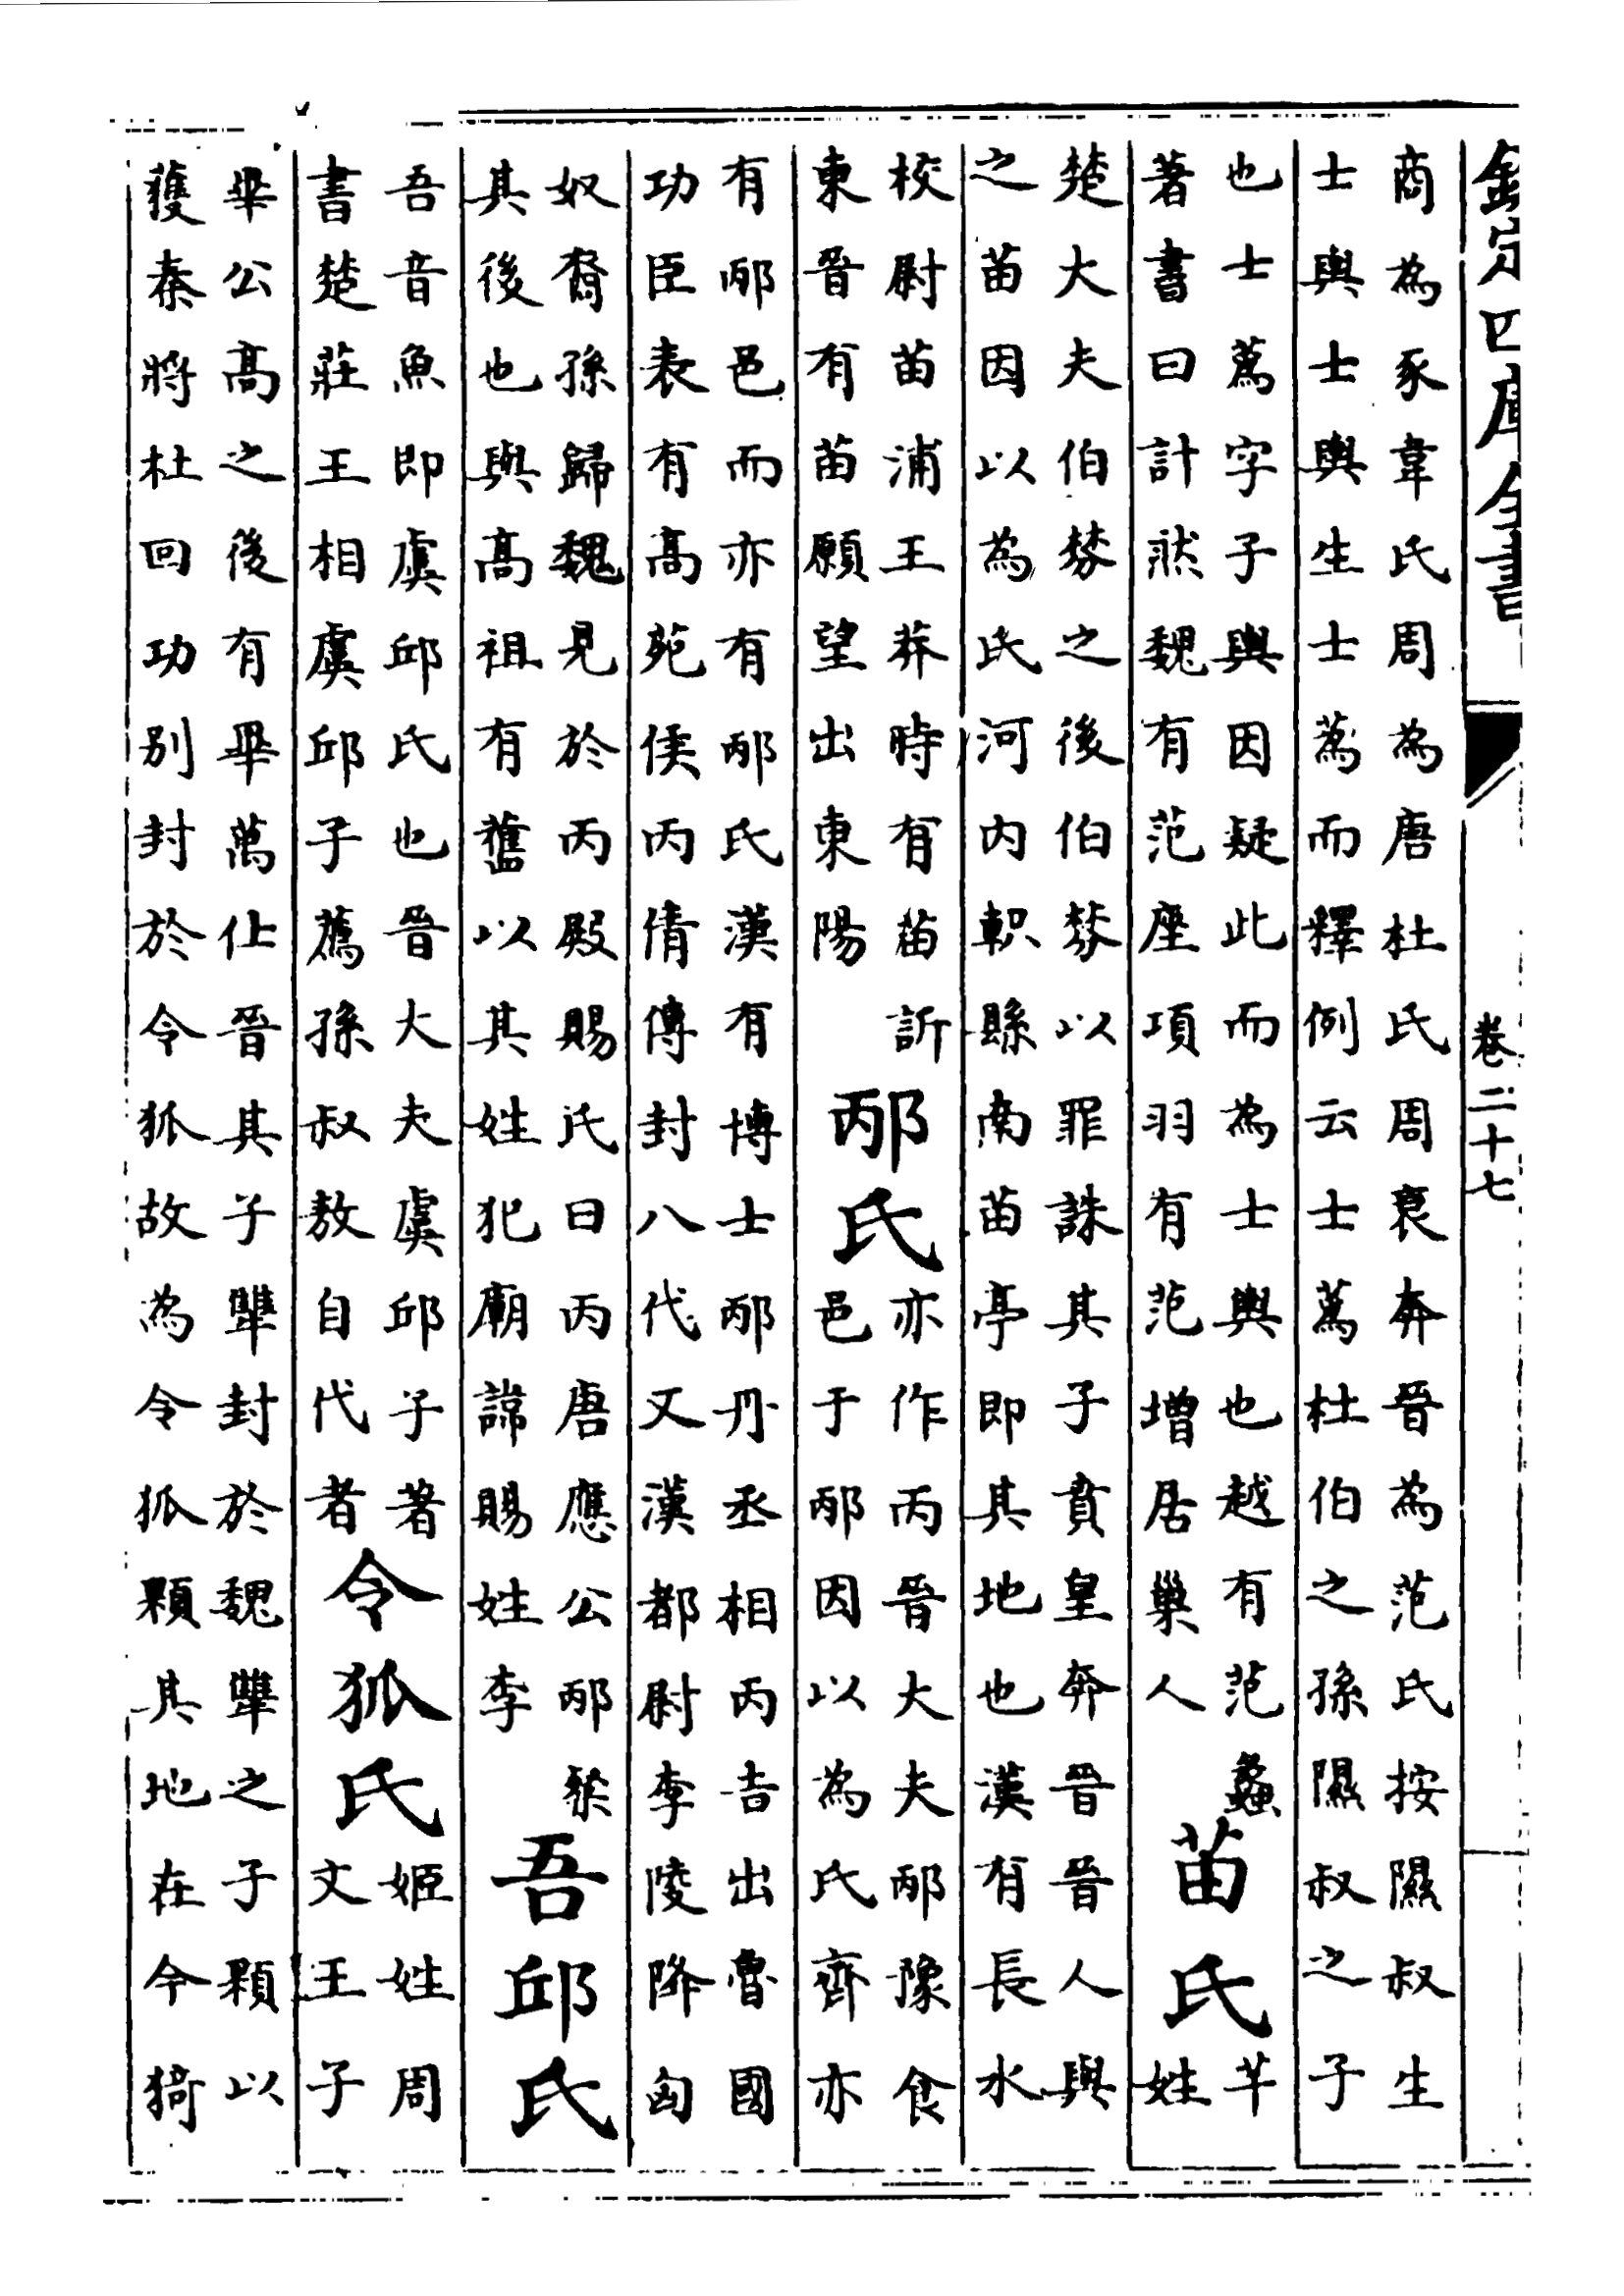 欽定四庫全書
卷二十七
商為豕韋氏周為唐杜氏周衰奔晉為范氏按隰叔生
士輿士輿生士蒍而釋例云士蒍杜伯之孫隰叔之子
也士蒍字子輿因疑此而為士輿也越有范蠡
著書曰計然魏有范座項羽有范增居巢人
苗氏
芊
姓
楚大夫伯棼之後伯棼以罪誅其子賁皇奔晉晉人與
之苗因以為氏河内軹縣南苗亭即其地也漢有長水
校尉苗浦王莽時有苗訢
東晉有苗願望出東陽
邴氏
亦作丙晉大夫邴豫食
邑于邴因以為氏齊亦
有邴邑而亦有邴氏漢有博士邴丹丞相丙吉出魯國
功臣表有高苑侯丙倩傳封八代又漢都尉李陵降匈
奴裔孫歸魏見於丙殿賜氏曰丙唐應公邴粲
其後也與高祖有舊以其姓犯廟諱賜姓李
吾邱氏
吾音魚即虞邱氏也晉大夫虞邱子著
書楚莊王相虞邱子薦孫叔敖自代者
令狐氏
姬姓周
文王子
畢公高之後有畢萬仕晉其子犫封於魏犫之子顆以
獲秦將杜回功別封於令狐故為令狐顆其地在今猗